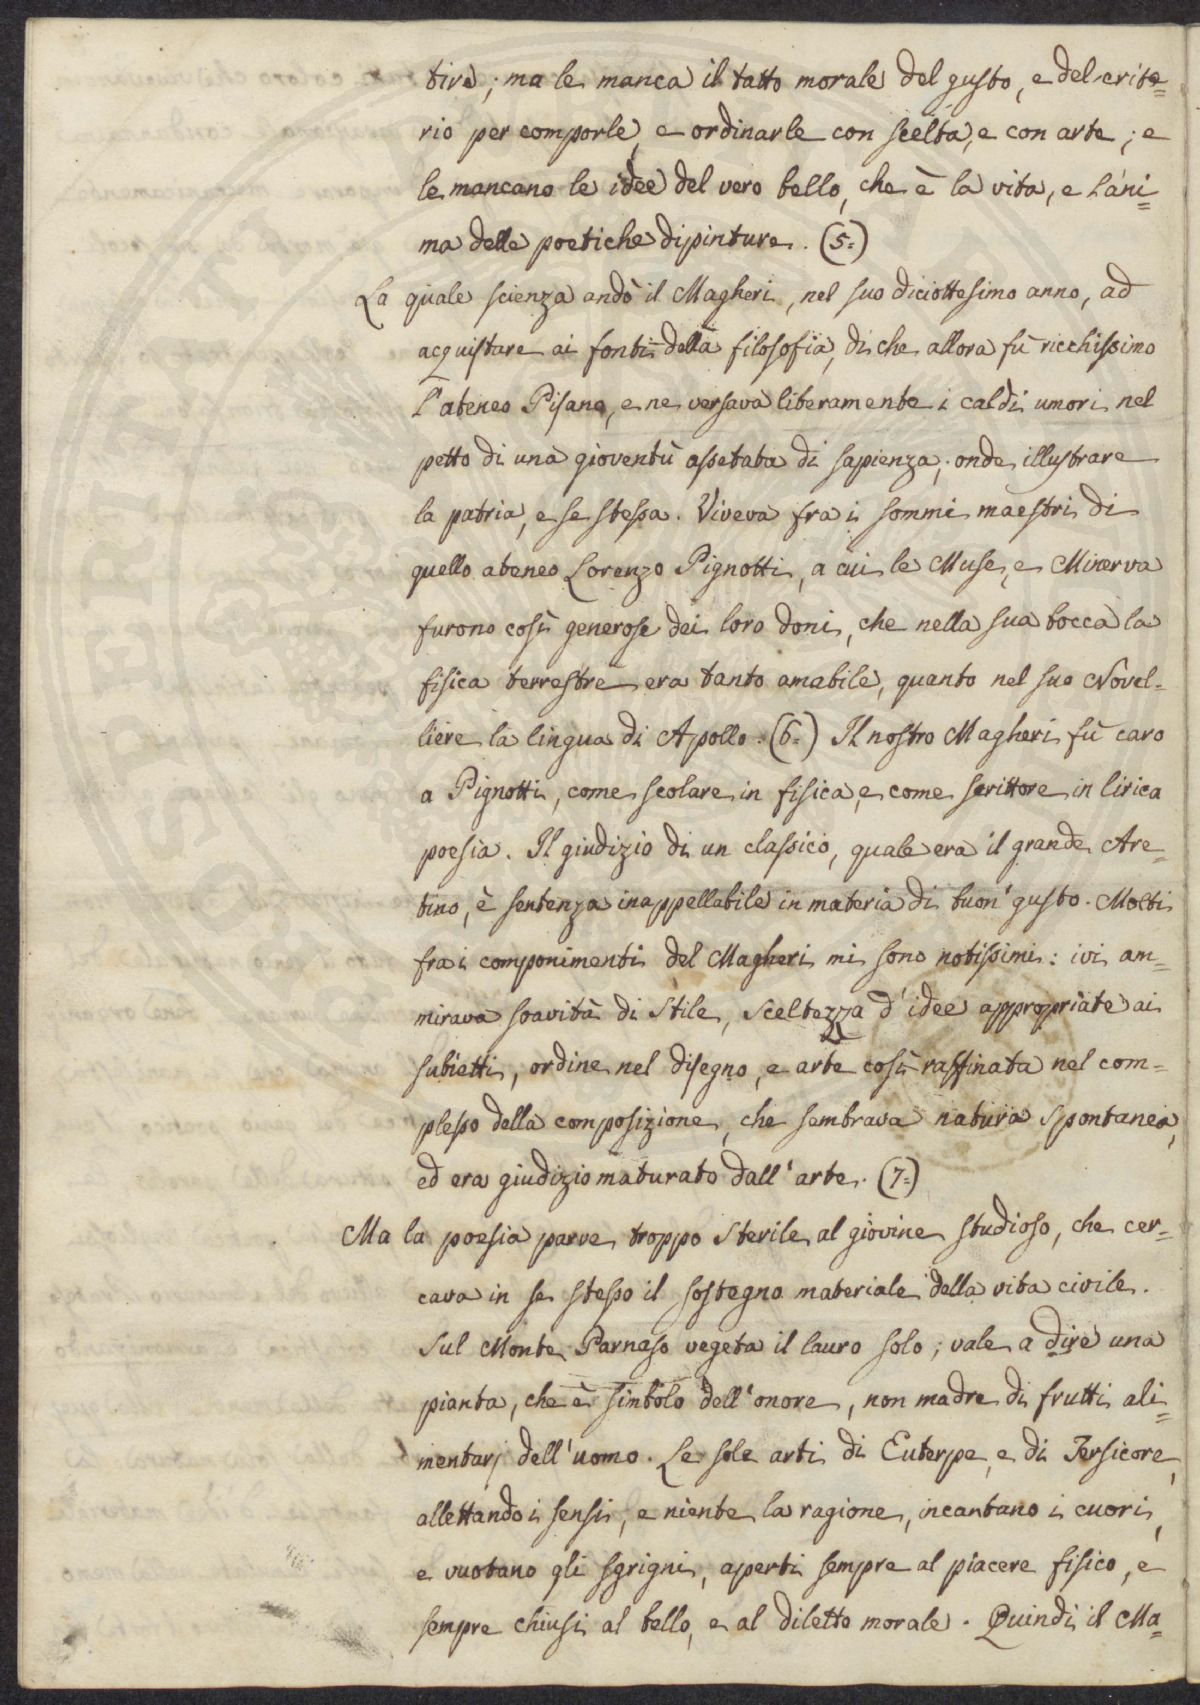 tive; ma le manca il tatto morale del gusto, e del crite=
rio per comporle, e ordinarle con scelta, e con arte; e
le mancano le idee del vero bello, che è la vita, e l'ani=
ma delle poetiche dipinture. (5=)
La quale scienza andò il Magheri, nel suo diciottesimo anno, ad
acquistare ai fonti della filosofia, di che allora fù ricchissimo
l'ateneo Pisano, e ne versava liberamente i caldi umori nel
petto di una gioventù assetata di sapienza, onde illustrare
la patria, e se stessa. Viveva fra i sommi maestri di
quello ateneo Lorenzo Pignotti, a cui le Muse, e Minerva
furono così generose dei loro doni, che nella sua bocca la
fisica terrestre era tanto amabile, quanto nel suo Novel=
liere la lingua di Apollo. (6=) Il nostro Magheri fù caro
a Pignotti, come scolare in fisica, e come scrittore in lirica
poesia. Il giudizio di un classico, quale era il grande Are=
tino, è sentenza inappellabile in materia di buon' gusto. Molti
fra i componimenti del Magheri mi sono notissimi: ivi am=
mirava soavità di stile, sceltezza d'idee appropriate ai
subietti, ordine nel disegno, e arte così raffinata nel com=
plesso della composizione, che sembrava natura spontanea,
ed era giudizio maturato dall'arte. (7=)
Ma la poesia parve troppo sterile al giovine studioso, che cer=
cava in se stesso il sostegno materiale della vita civile.
Sul Monte Parnaso vegeta il lauro solo; vale a dire una
pianta, che è simbolo dell'onore, non madre di frutti ali=
mentarj dell'uomo. Le sole arti di Euterpe, e di Tersicore,
allettando i sensi, e niente la ragione, incantano i cuori,
e vuotano gli sgrigni, aperti sempre al piacere fisico, e
sempre chiusi al bello, e al diletto morale. Quindi il Ma=